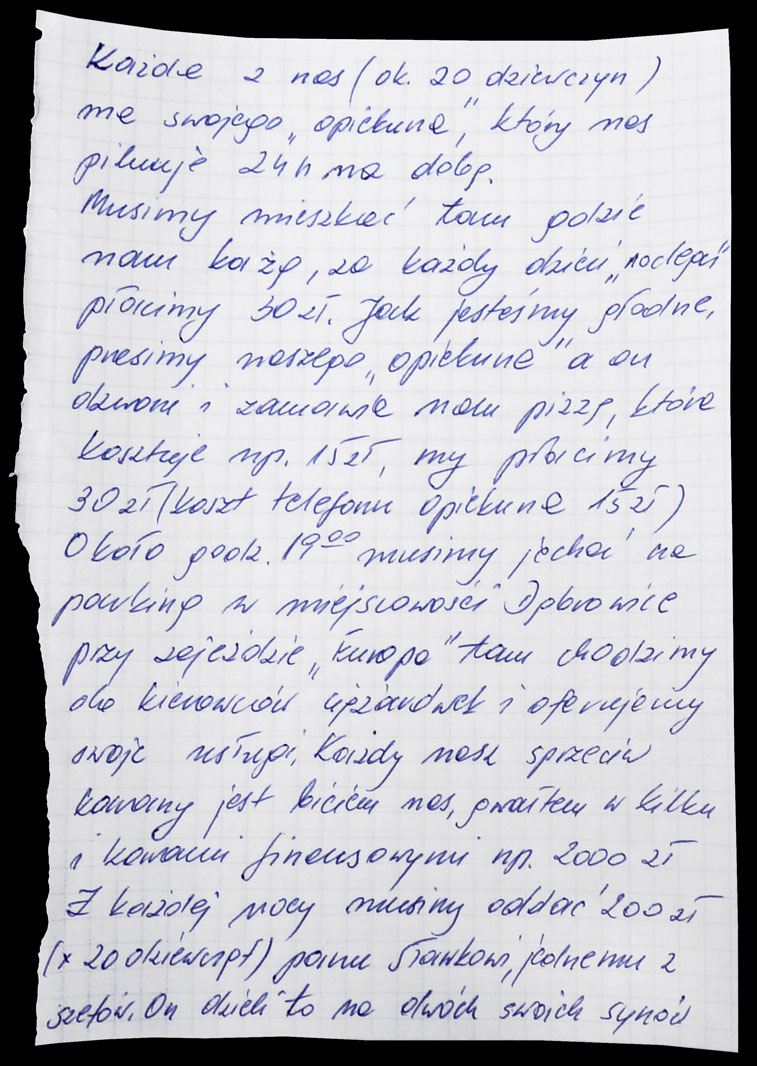 Każda z nas (ok. 20 dziewczyn)
ma swojego „opiekuna”, który nas
pilnuje 24h na dobę.
Musimy mieszkać tam gdzie
nam każą, za każdy dzień „noclegu”
płacimy 30 zł. Jak jesteśmy głodne,
prosimy naszego „opiekuna” a on
dzwoni i zamawia nam pizzę, która
kosztuje np. 15 zł, my płacimy
30 zł (koszt telefonu opiekuna 15 zł)
Około godz. 19⁰⁰ musimy jechać na
parking w miejscowości Dąbrowice
przy zajeździe „Europa” tam chodzimy
do kierowców ciężarówek i oferujemy
swoje usługi. Każdy nasz sprzeciw
karany jest biciem nas, gwałtem w kilku
i karami finansowymi np. 2000 zł
Z każdej nocy musimy oddać 200 zł
(x 20 dziewcząt) panu Sławkowi, jednemu z
szefów. On dzieli to na dwóch swoich synów